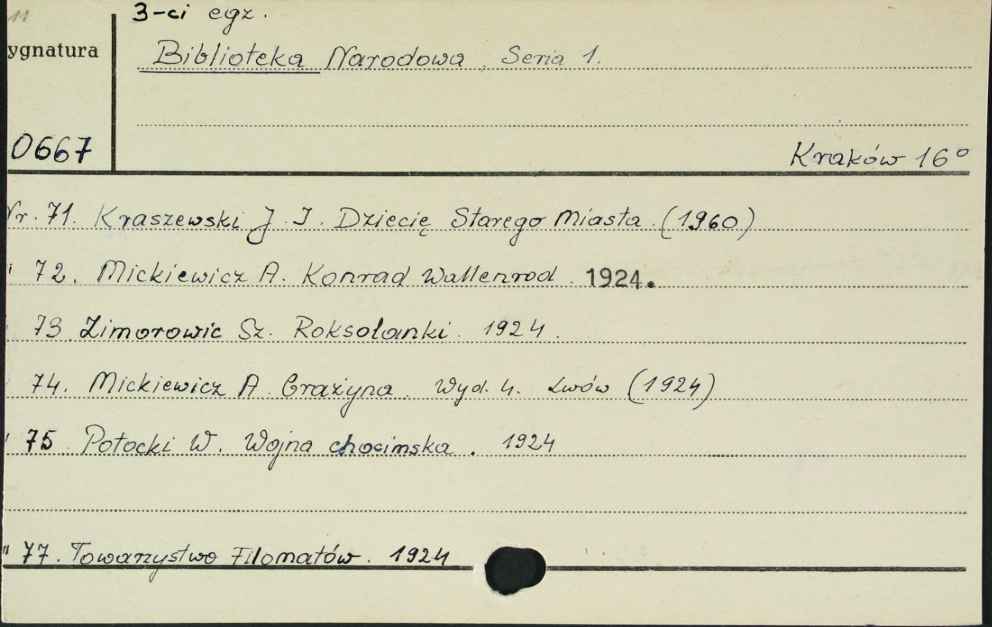 11
3-ci egz.
ygnatura
Biblioteka Narodowa, Seria 1.
0667
Kraków 16°
Nr. 71. Kraszewski J. I. Dziecię Starego Miasta. (1960)
" 72. Mickiewicz A. Konrad Wallenrod. 1924.
73 Zimorowic Sz. Roksolanki. 1924.
74. Mickiewicz A. Grażyna. Wyd. 4. Lwów (1924)
" 75. Potocki W. Wojna chocimska. 1924
" 77. Towarzystwo Filomatów. 1924